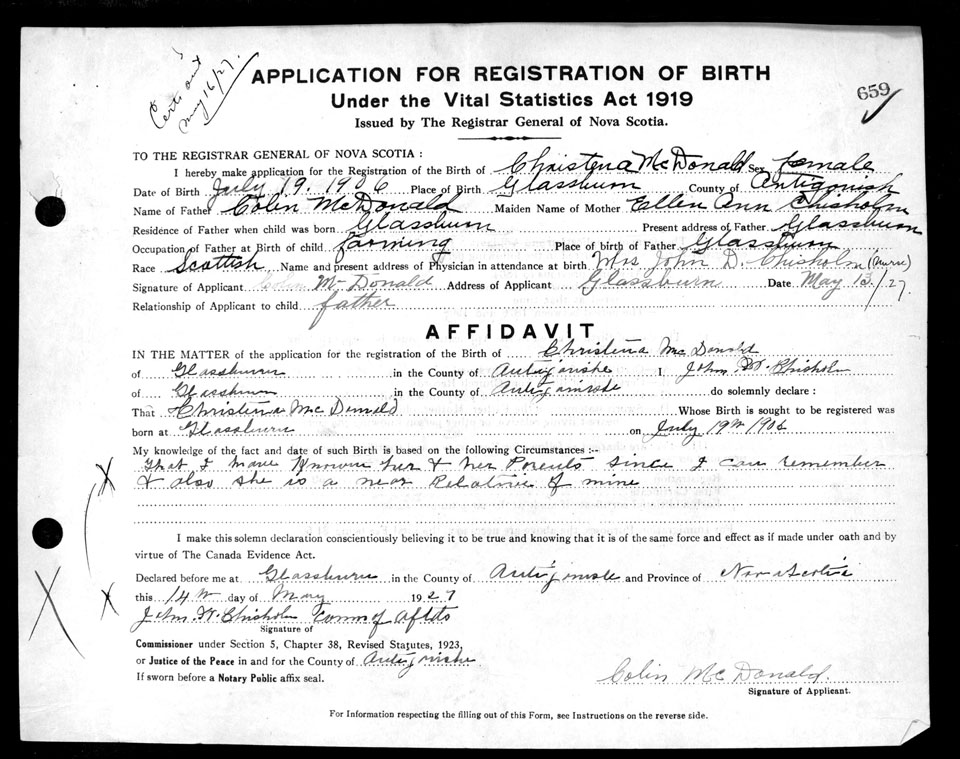 Certs out
May 16/27.
APPLICATION FOR REGISTRATION OF BIRTH
Under the Vital Statistics Act 1919
Issued by The Registrar General of Nova Scotia.
659
TO THE REGISTRAR GENERAL OF NOVA SCOTIA :
I hereby make application for the Registration of the Birth of Christena McDonald Sex female
Date of Birth July 19. 1906 Place of Birth Glassburn County of Antigonish
Name of Father Colin McDonald Maiden Name of Mother Ellen Ann Chisholm
Residence of Father when child was born Glassburn Present address of Father Glassburn
Occupation of Father at Birth of child farming Place of birth of Father Glassburn
Race Scottish Name and present address of Physician in attendance at birth Mrs John D. Chisholm (Nurse)
Signature of Applicant Colin McDonald Address of Applicant Glassburn Date May 13/27.
Relationship of Applicant to child father
AFFIDAVIT
IN THE MATTER of the application for the registration of the Birth of Christina McDonald
of Glassburn in the County of Antigonishe I John W. Chisholm
of Glassburn in the County of Antigonishe do solemnly declare :
That Christina McDonald Whose Birth is sought to be registered was
born at Glassburn on July 19th 1906
My knowledge of the fact and date of such Birth is based on the following Circumstances :-
That I have Known her & her Parents since I can remember
& also she is a near Relative of mine
I make this solemn declaration conscientiously believing it to be true and knowing that it is of the same force and effect as if made under oath and by
virtue of The Canada Evidence Act.
Declared before me at Glassburn in the County of Antigonishe and Province of Nova Scotia
this 14th day of May 1927
John. W. Chisholm Comm of Affts
Signature of
Commissioner under Section 5, Chapter 38, Revised Statutes, 1923,
or Justice of the Peace in and for the County of Antigonishe
If sworn before a Notary Public affix seal.
Colin McDonald.
Signature of Applicant.
For Information respecting the filling out of this Form, see Instructions on the reverse side.